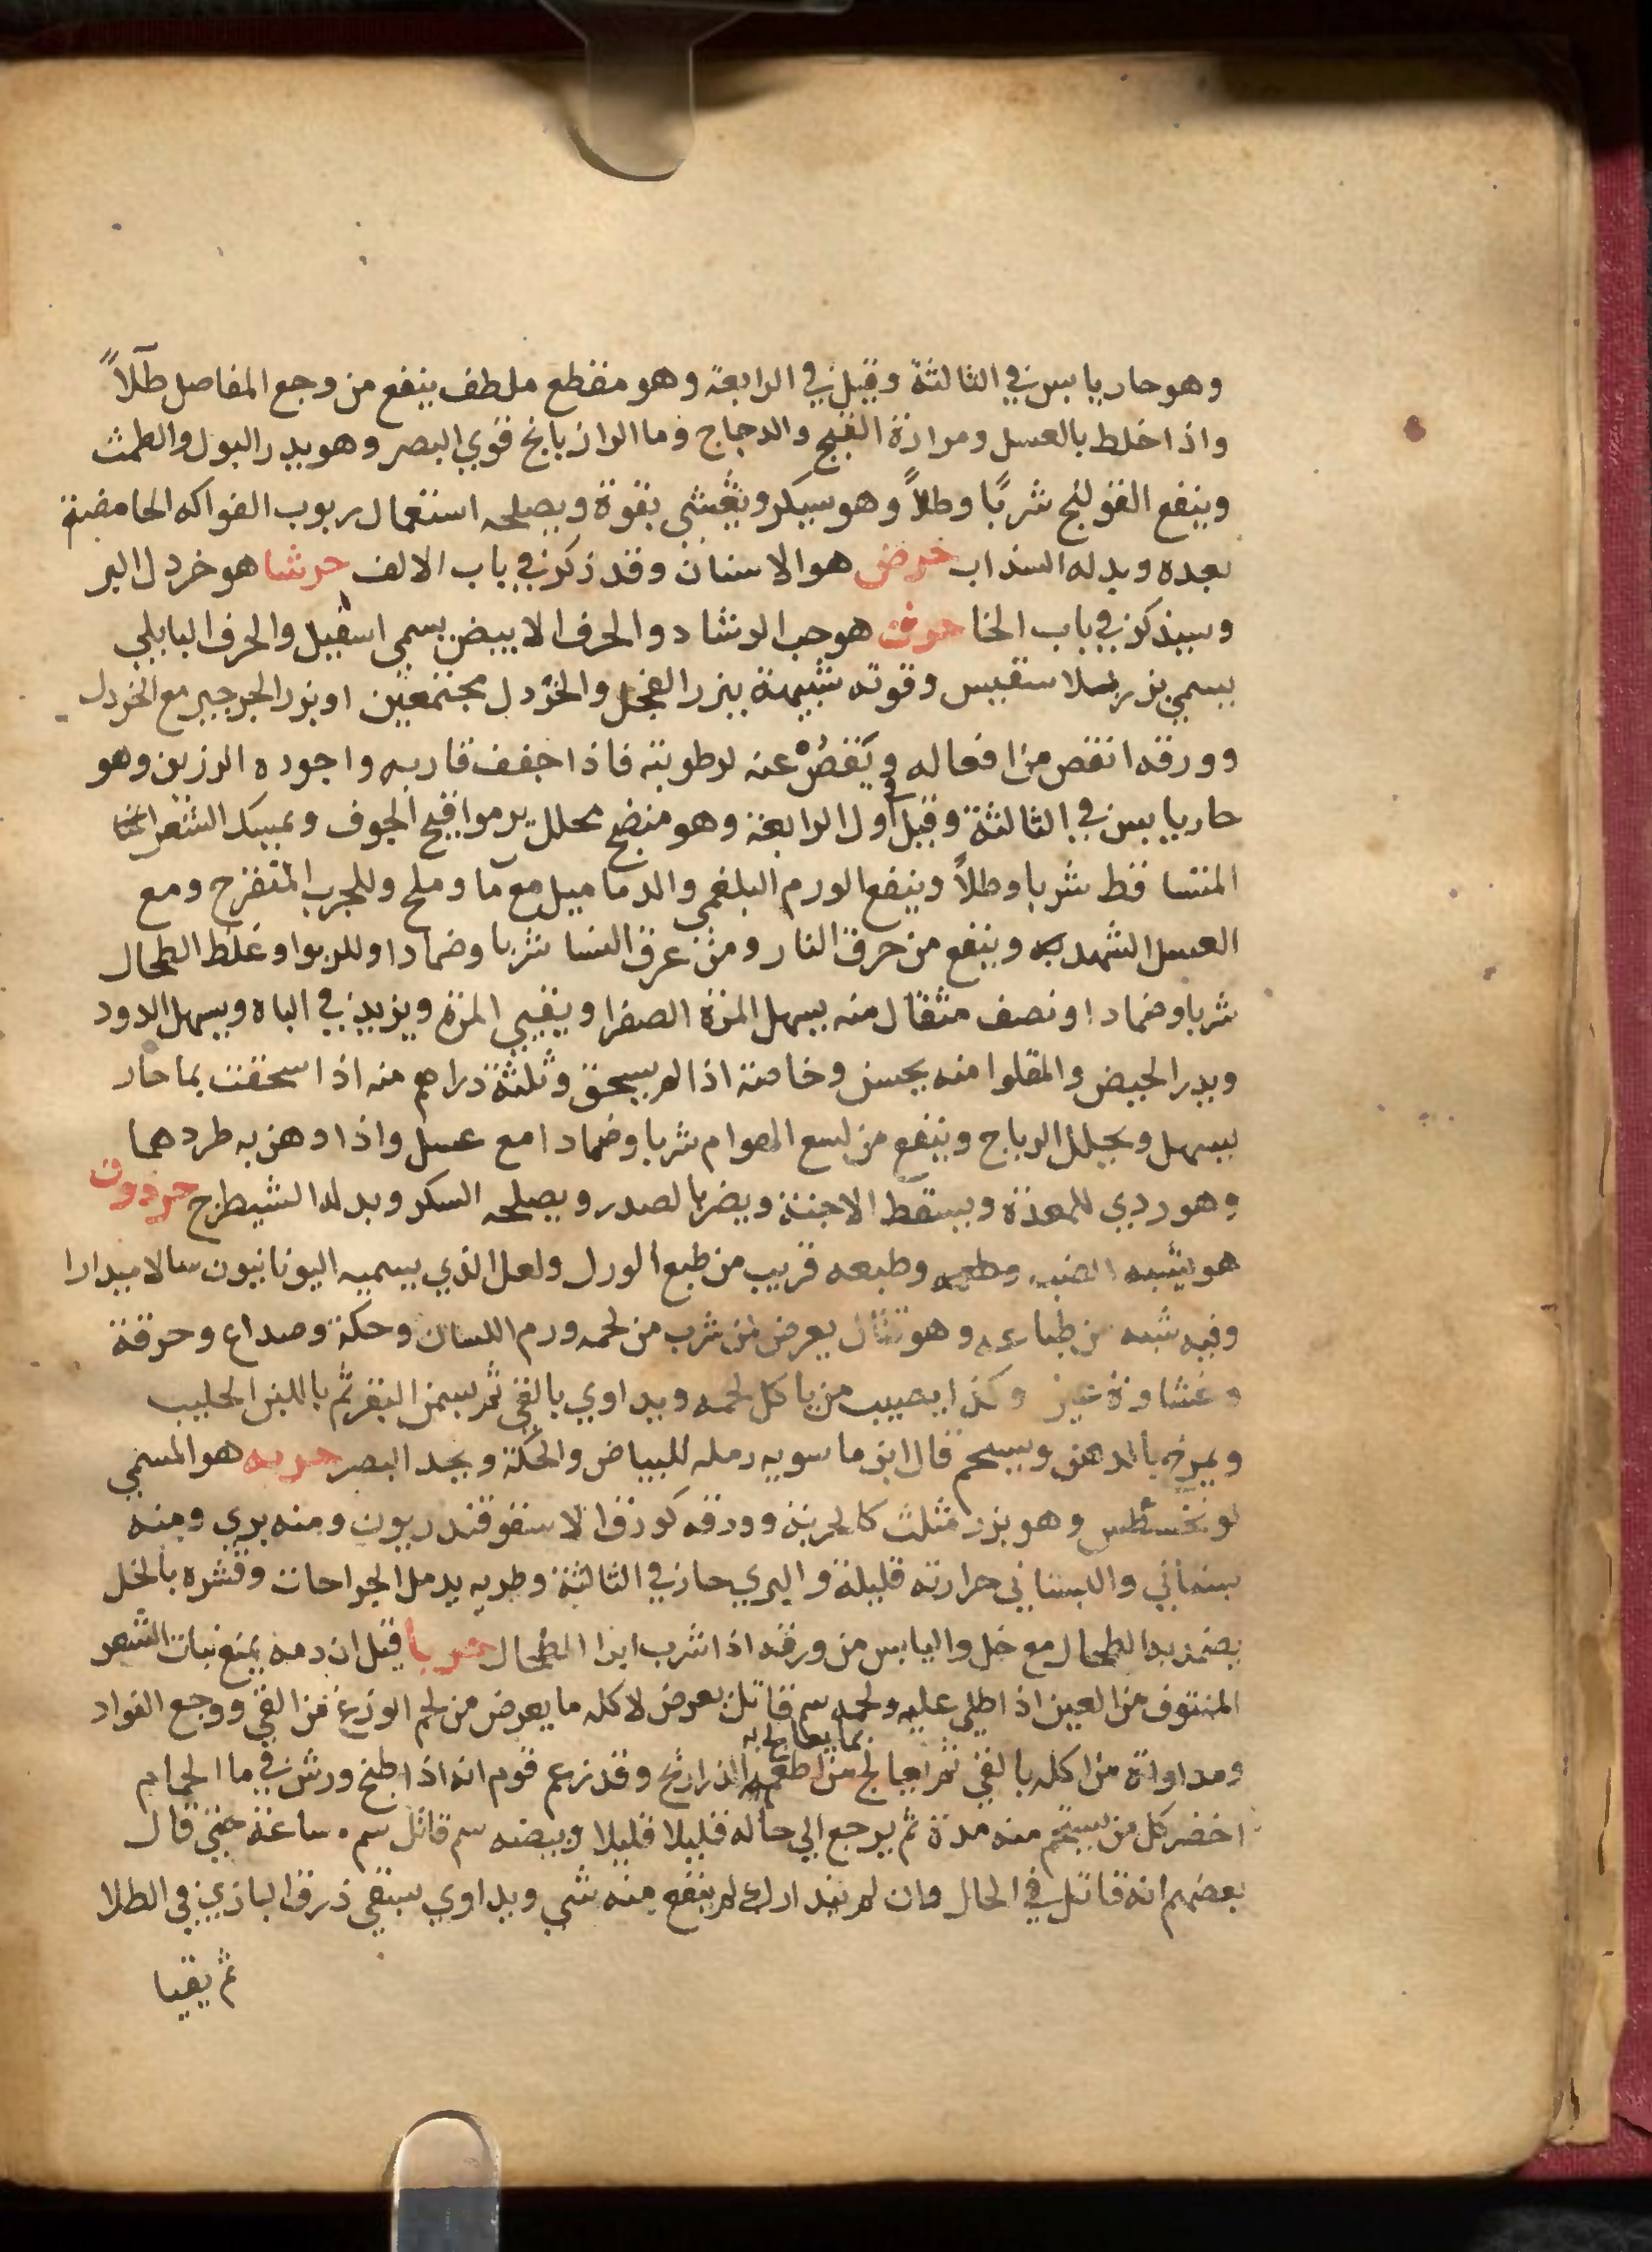 وهو حار يابس في الثالثة وقيل في الرابعة وهو مقطع ملطف ينفع من وجع المفاصل طلاً
واذا خلط بالعسل ومرارة القبج والدجاج وما الرازيانج قوي البصر وهو يدر البول والطمث
وينفع القولنج شربًا وطلاً وهو يسكر ويغثي بقوة ويصلحه استعمال ربوب الفواكه الحامضة
بعده وبدله السذاب حرض هو الاشنان وقد ذكر في باب الالف حرشا هو خردل البر
وسيذكر في باب الخا حرف هو حب الرشاد والحرف الابيض يسمي اسفيل والحرف البابلي
يسمي بزر وقوته شبيهة ببزر الفجل والخردل مجتمعين او بزر الجرجير مع الخردل
وورقه انقص من افعاله وينقص عنه لرطوبته فاذا جفف قاربه واجوده الرزين وهو
حار يابس في الثالثة وقيل في اول الرابعة وهو منضج محلل قيح الجوف ويمسك الشعر
المتساقط شربا وطلاً وينفع الورم البلغمي والدماميل مع ما وملح وللجرب المتقرح ومع
العسل الشهديه وينفع من حرق النار ومن عرق النسا شربا وضمادا وللربو او غلظ الطحال
شربا وضمادا ونصف مثقال منه يسهل المرة الصفرا ويقيي المرة ويزيد في الباه ويسهل الدود
ويدر الحيض والمقلوا منه يحبس وخاصة اذا لم يسحق وثلثة دراهم منه اذا سحقت بما حار
يسهل ويحلل الرياح وينفع من لسع الهوام شربا وضمادا مع عسل واذا دهن به طردها
وهو ردي للمعدة ويسقط الاجنة ويضر بالصدر ويصلحه السكر وبدله الشيطرج حردون
هو يشبه الضب وطبعه قريب من طبع الورل ولعل الذي يسميه اليونانيون سالاميدارا
وفيه شبه من طباعه وهو قتال يعرض لمن شرب من لحمه ورم اللسان وحكة وصداع وحرقة
وغشاوة عين وكذا يصيب من ياكل لحمه ويداوي بالقي ثم بسمن البقر ثم باللبن الحليب
ويمرخ بالدهن ويسحم قال ابن ماسويه رمله للبياض والحكة ويحد البصر حربه هو المسمي
وهو بزر مثلث كالحربة وورقه كورق الاسقوقندريون ومنه بري ومنه
بستاني والبستاني حرارته قليلة والبري حار في الثالثة وطريه يدمل الجراحات وقشره بالخل
يضمد به الطحال مع خل واليابس من ورقه اذا شرب ابرا الطحال حربا قيل ان دمه يمنع نبات الشعر
المنتوف من العين اذا طلي عليه ولحمه سم قاتل يعرض لاكله ما يعرض من لحم الوزغ من القي ووجع الفواد
ومداواة من اكله بالقي ثم يعالج بما يعالج به من اطعم الذراريح وقد زعم قوم انه اذا طبخ ورش في ما الحمام
اخضر كل من يستحم منه مدة ثم يرجع الي حاله قليلا قليلا وبيضه سم قاتل سم ساعة حتي قال
بعضهم انه قاتل في الحال وان لم يتدارك لم ينفع منه شي ويداوي بسقي ذرق البازي في الطلا
ثم يقيا